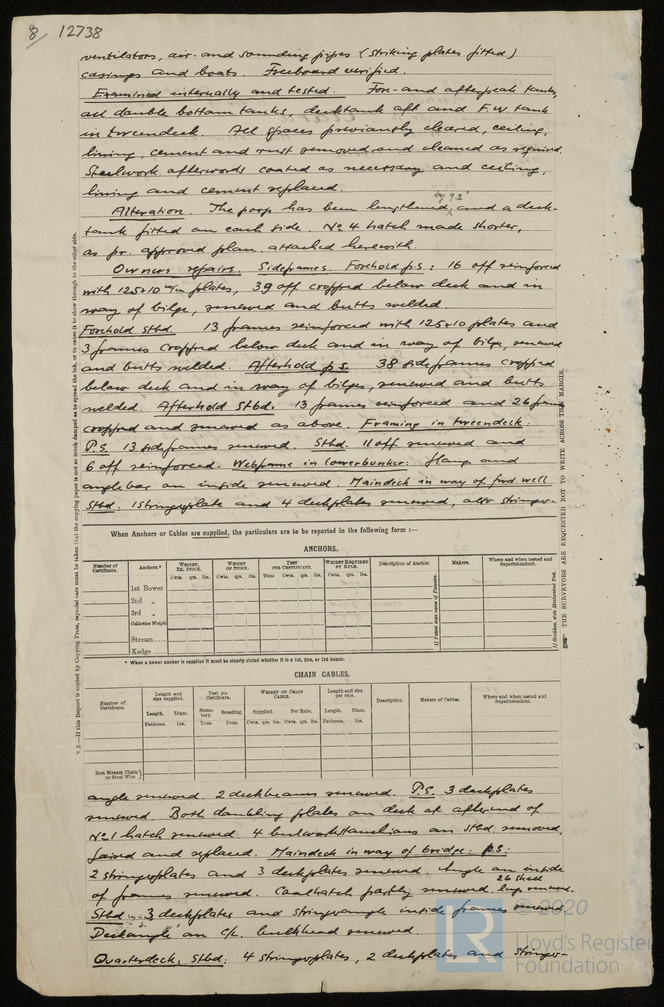 8/ 12738
ventilators, air- and sounding pipes (striking plates fitted)
casings and boats. Freeboard verified.
Examined internally and tested. Fore- and afterpeak tanks,
all double bottom tanks, decktank aft and F.W. tank
in tweendeck. All spaces previously cleared, ceiling,
lining, cement and rust removed and cleaned as required.
Steelwork afterwards coated as necessary and ceiling,
lining and cement replaced.
by 9.2'
Alteration. The poop has been lengthened, and a deck-
tank fitted on each side. No 4 hatch made shorter,
as pr. approved plan attached herewith.
Owners repairs. Sideframes. Forehold p.s: 16 off reinforced
with 125x10 m/m plates, 39 off cropped below deck and in
way of bilge, renewed and butts welded.
Forehold Stbd. 13 frames reinforced with 125x10 plates and
3 frames cropped below deck and in way of bilge, renewed
and butts welded. Afterhold p.s. 38 sideframes cropped
below deck and in way of bilges, renewed and butts
welded. Afterhold Stbd. 13 frames reinforced and 26 frames
cropped and renewed as above. Framing in tweendeck
P.S. 13 sideframes renewed. Stbd. 11 off renewed and
6 off reinforced. Webframe in lowerbunker: Flang and
anglebar on inside renewed. Maindeck in way of fwd well
Stbd. 1 stringerplate and 4 deckplates renewed, also stringer-
When Anchors or Cables are supplied, the particulars are to be reported in the following form :—
ANCHORS.
Number of Certificate. Anchors.* Weight, Ex. Stock. Weight of Stock. Test per Certificate. Weight Required by Rule. Description of Anchor. Makers. Where and when tested and Superintendent.
Cwts. qrs. lbs. Cwts. qrs. lbs. Tons Cwts. qrs. lbs. Cwts. qrs. lbs.
1st Bower
2nd „
3rd „
Collective Weight
Stream
Kedge
* When a bower anchor is supplied it must be clearly stated whether it is a 1st, 2nd, or 3rd bower.
CHAIN CABLES.
Number of Certificate. Length and size supplied. Test pr. Certificate. Weight of Chain Cable. Length and size per rule. Description. Makers of Cables. Where and when tested and Superintendent.
Length. Diam. Statutory. Breaking. Supplied. Per Rule. Length. Diam.
Fathoms. Ins. Tons. Tons. Cwts. qrs. lbs. Cwts. qrs. lbs. Fathoms. Ins.
Iron Stream Chain or Steel Wire }
angle renewed. 2 deckbeams renewed. P.S. 3 deckplates
renewed. Both doubling plates on deck at afterend of
No 1 hatch renewed. 4 bulwarkstanchions on stbd removed,
faired and replaced. Maindeck in way of bridge: p.s:
2 stringerplates and 3 deckplates renewed. Angle on inside
26 shell
of frames renewed. Coalhatch partly renewed. lugs renewed.
Stbd 3 deckplates and stringerangle inside frames renewed
Deckangle on c/c bulkhead renewed.
Quarterdeck, stbd: 4 stringerplates, 2 deckplates and stringer-
N.B.—If this Report is copied by Copying Press, especial care must be taken that the copying paper is not so much damped as to spread the ink, or to cause it to show through to the other side.
THE SURVEYORS ARE REQUESTED NOT TO WRITE ACROSS THE MARGIN.
LR
© 2020
Lloyd's Register
Foundation